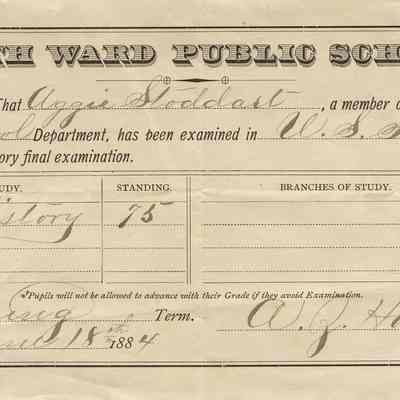 TH WARD PUBLIC SCH
That Aggie Stoddart, a member o
ol Department, has been examined in U.S.
ory final examination.
UDY. STANDING. BRANCHES OF STUDY.
istory 75
Pupils will not be allowed to advance with their Grade if they avoid Examination.
ring Term. W. J. H
une 18th 1884